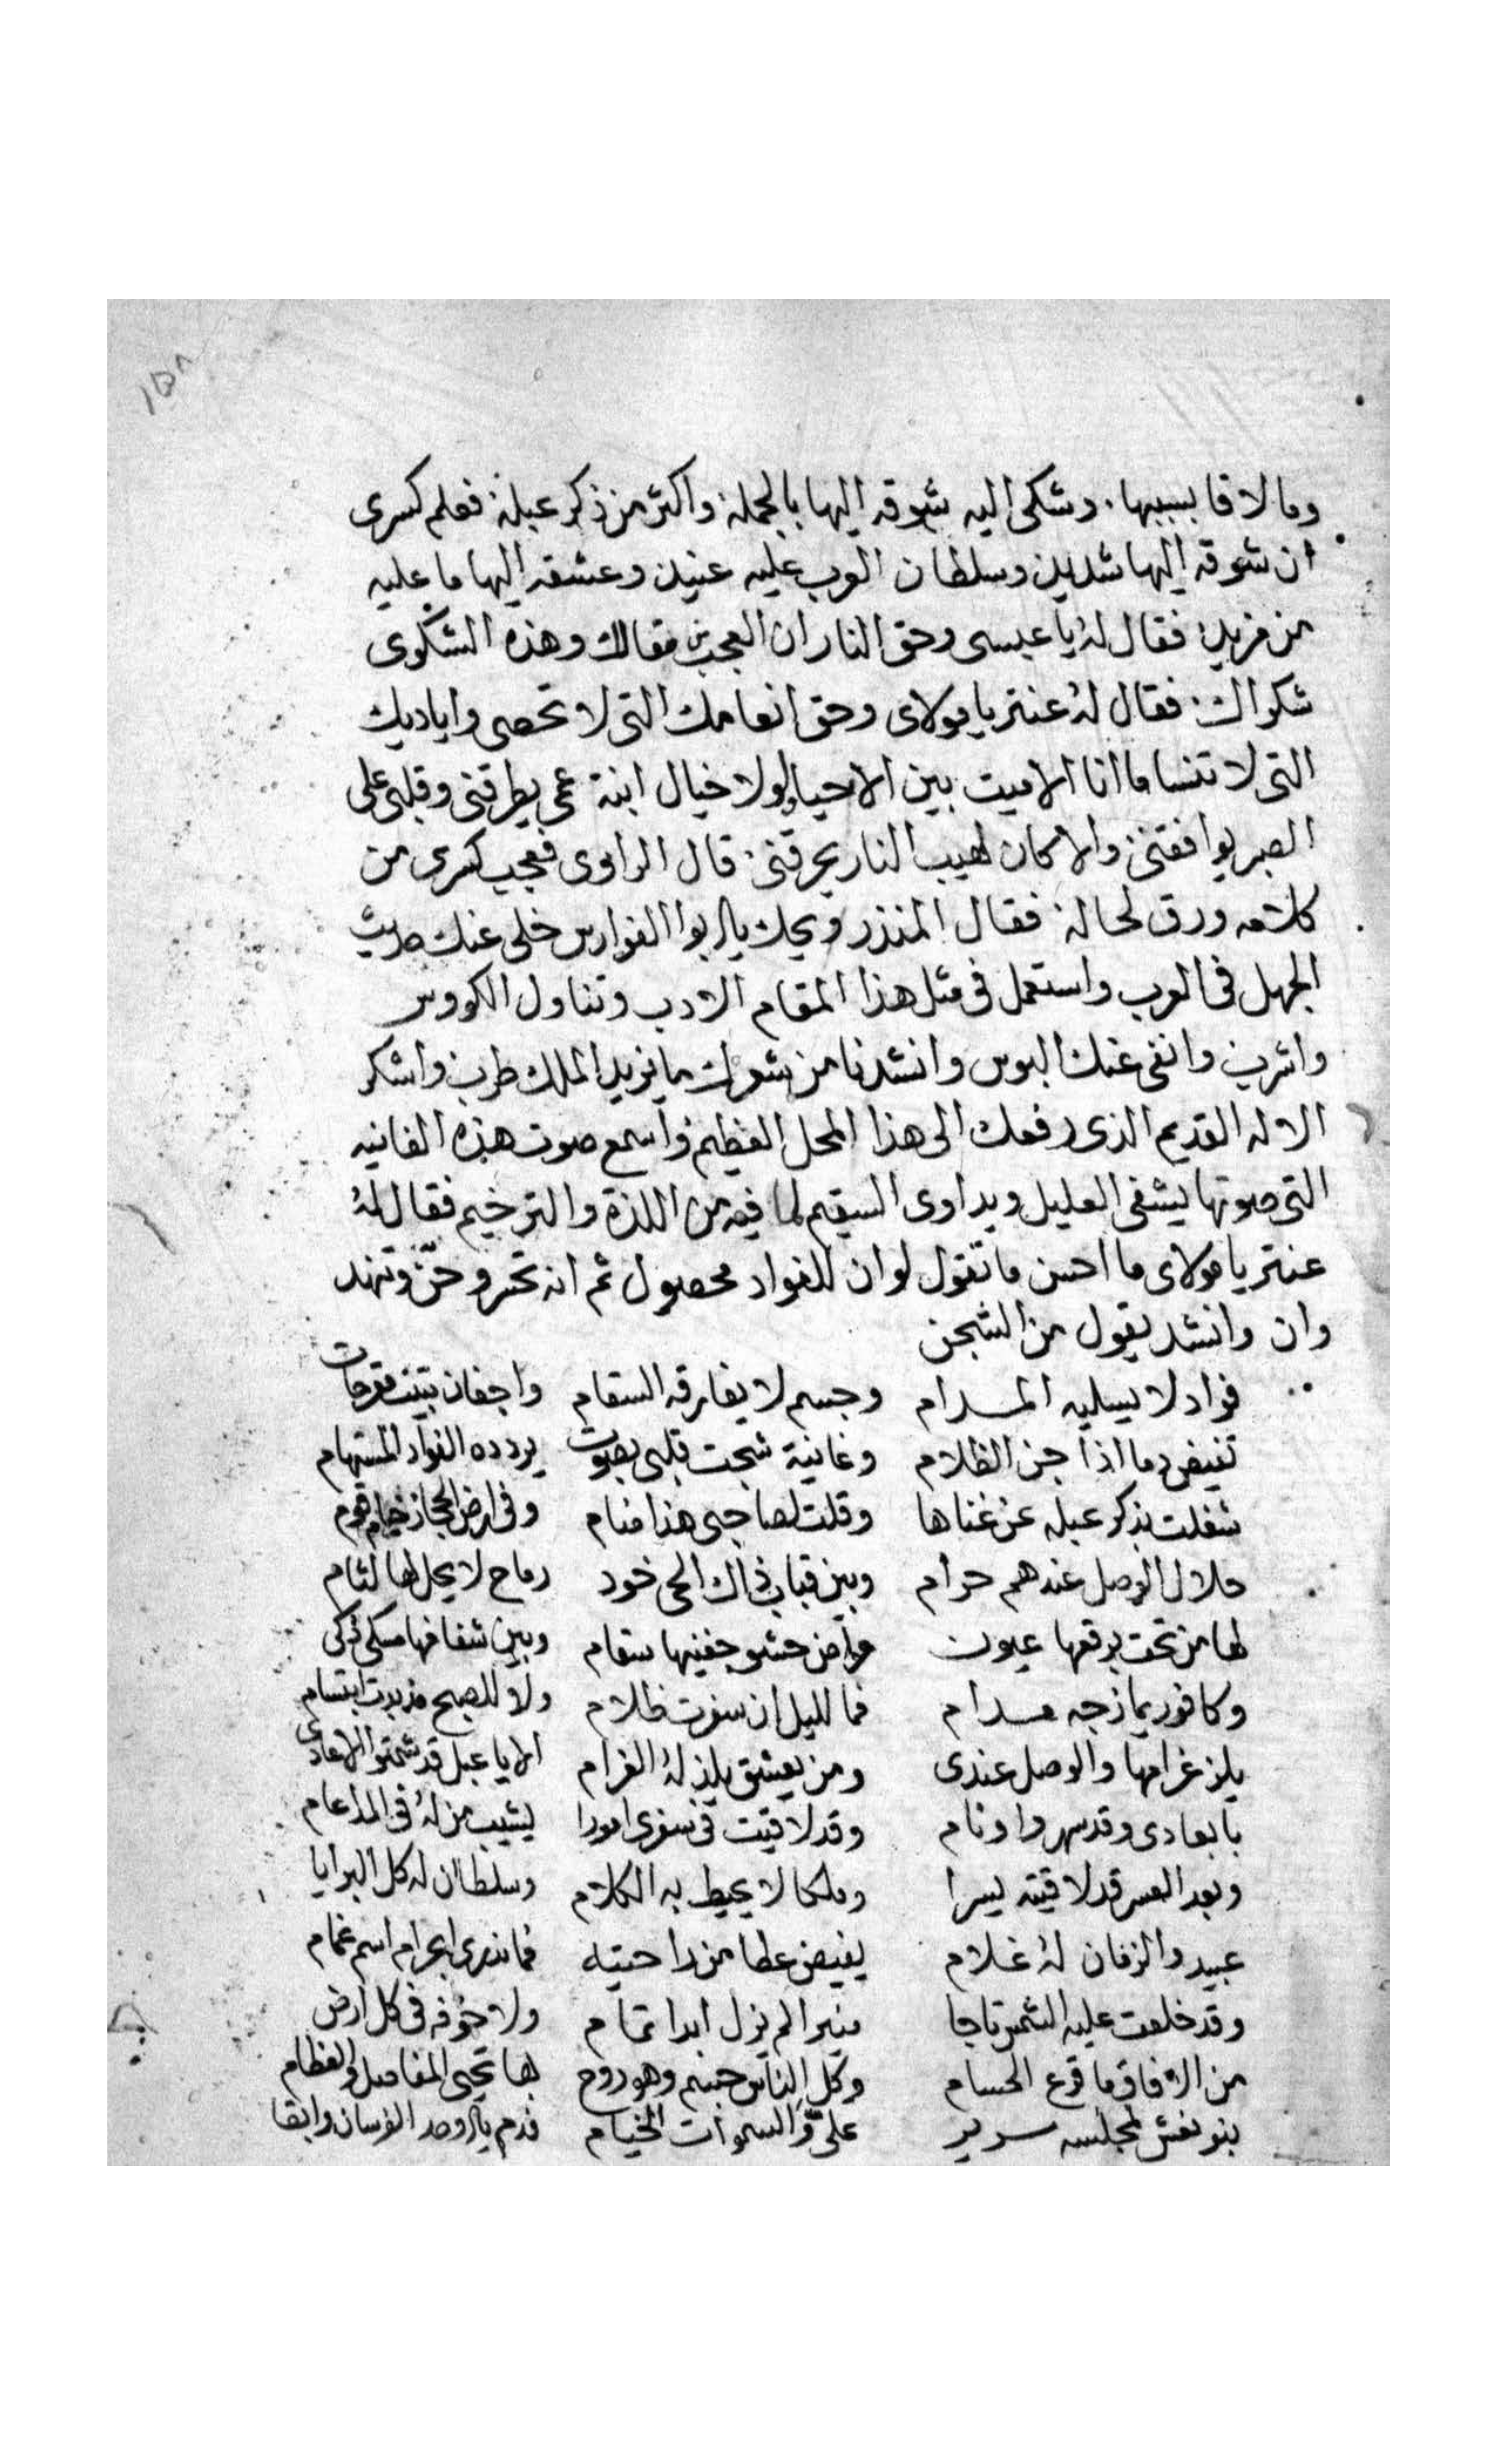 ١٥٨
وما لاقا بسببها. وشكى اليه شوقه اليها بالجملة واكثر من ذكر عبلة فعلم كسرى
ان شوقه اليها شديد وسلطان العرب عليه عنيد وعشقه اليها ما عليه
من مزيد فقال له يا عبسى وحق النار ان العجب من مقالك وهذه الشكوى
شكواك فقال له عنتر يا مولاى وحق انعامك التى لا تحصى واياديك
التى لا تنسا ما انا الا ميت بين الاحيا ولولا خيال ابنة عمى يطرقنى وقلبى على
الصبر يوافقنى والا كان لهيب النار يحرقنى قال الراوى فعجب كسرى من
كلامه ورق لحاله فقال المنذر ويحك يا ابوا الفوارس خلى عنك حديث
الجهل فى العرب واستعمل فى مثل هذا المقام الادب وتناول الكووس
واشرب وانفى عنك البوس وانشدنا من شعرك ما يزيد الملك طرب واشكر
الاله القديم الذى رفعك الى هذا المحل العظيم واسمع صوت هذه الغانيه
التى صوتها يشفى العليل ويداوى السقيم لما فيه من اللذة والترخيم فقال له
عنتر يا مولاى ما احسن ما تقول لو ان للفواد محصول ثم انه تحسر وحن وتنهد
وان وانشد يقول من الشجن
فواد لا يسليه المدام وجسم لا يفارقه السقام واجفان تبيت مقرحات
تفيض دما اذا جن الظلام وغانية شجت قلبى بصوت يردده الفواد المستهام
شغلت بذكر عبله عن غناها وقلت لصاحبى هذا منام وفى ارض الحجاز خيام قوم
حلال الوصل عندهم حرام وبين قباب ذاك الحى خود رداح لا يحل لها لثام
لها من تحت برقعها عيون مراض حشو جفنيها سقام وبين شفافها مسك ذكى
وكافور يمازجه مدام فما لليل ان سفرت ظلام ولا للصبح مذ بدت ابتسام
يلذ غرامها والوصل عندى ومن يعشق يلذ له الغرام الا يا عبل قد شمتوا الاعادى
بابعادى وقد سهروا ونام وقد لاقيت فى سفرى امورا يشيب من له فى المدا عام
وبعد العسر قد لاقيته يسرا وملكا لا يحيط به الكلام وسلطان له كل البرايا
عبيد والزمان له غلام يفيض عطا من راحتيه فما ندرى ابحر ام اسم غمام
وقد خلعت عليه الشمس تاجا منيرا لم يزل ابدا تمام ولا خوفه فى كل ارض
من الافاق ما قرع الحسام وكل الناس جسم وهو روح بها تحيى المفاصل والعظام
بنو نعش لمجلسه سرير على والسموات الخيام فدم يا اوحد الفرسان وابقا